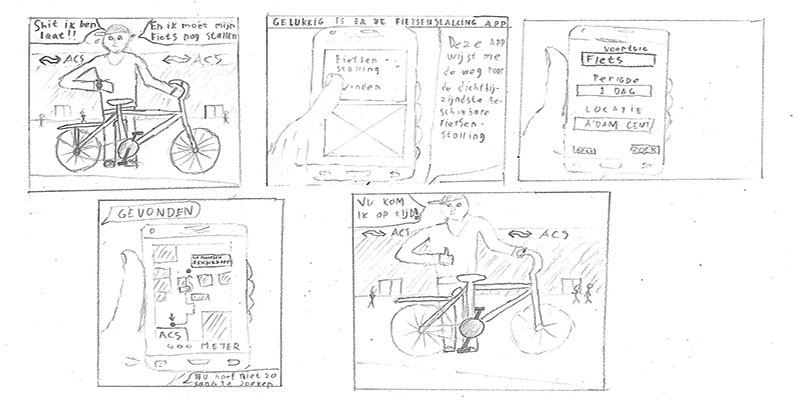 Shit ik ben
laat!!
En ik moet mijn
Fiets nog stallen
ACS
ACS
GELUKKIG IS ER DE FIETSENSTALLING APP
Fietsen-
stalling
vinden
Deze APP
wijst me
de weg naar
de dichtbij-
zijndste be-
schikbare
Fietsen-
stalling
VOERTUIG
Fiets
PERIODE
1 DAG
LOCATIE
A'DAM CENT
ZOEK
GEVONDEN
ACS
400 METER
Nu hoef niet zo
lang te zoeken
NU KOM
IK OP tijd!
ACS
ACS